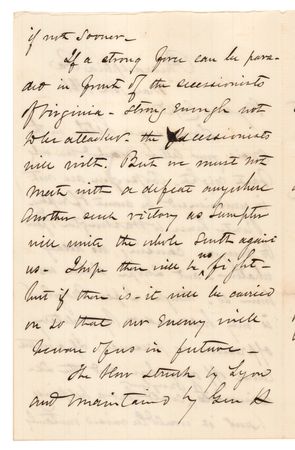 if not sooner -
If a strong force can be para-
ded in front of the secessionists
of Virginia - strong enough not
to be attacked - the secessionists
will wilt. But we must not
meet with a defeat anywhere
Another such victory as Sumpter
will unite the whole South against
us - I hope there will be no fight -
but if there is - it will be carried
on so that our enemy will
beware of us in future -
The blow struck by Lyon
and maintained by Gen H